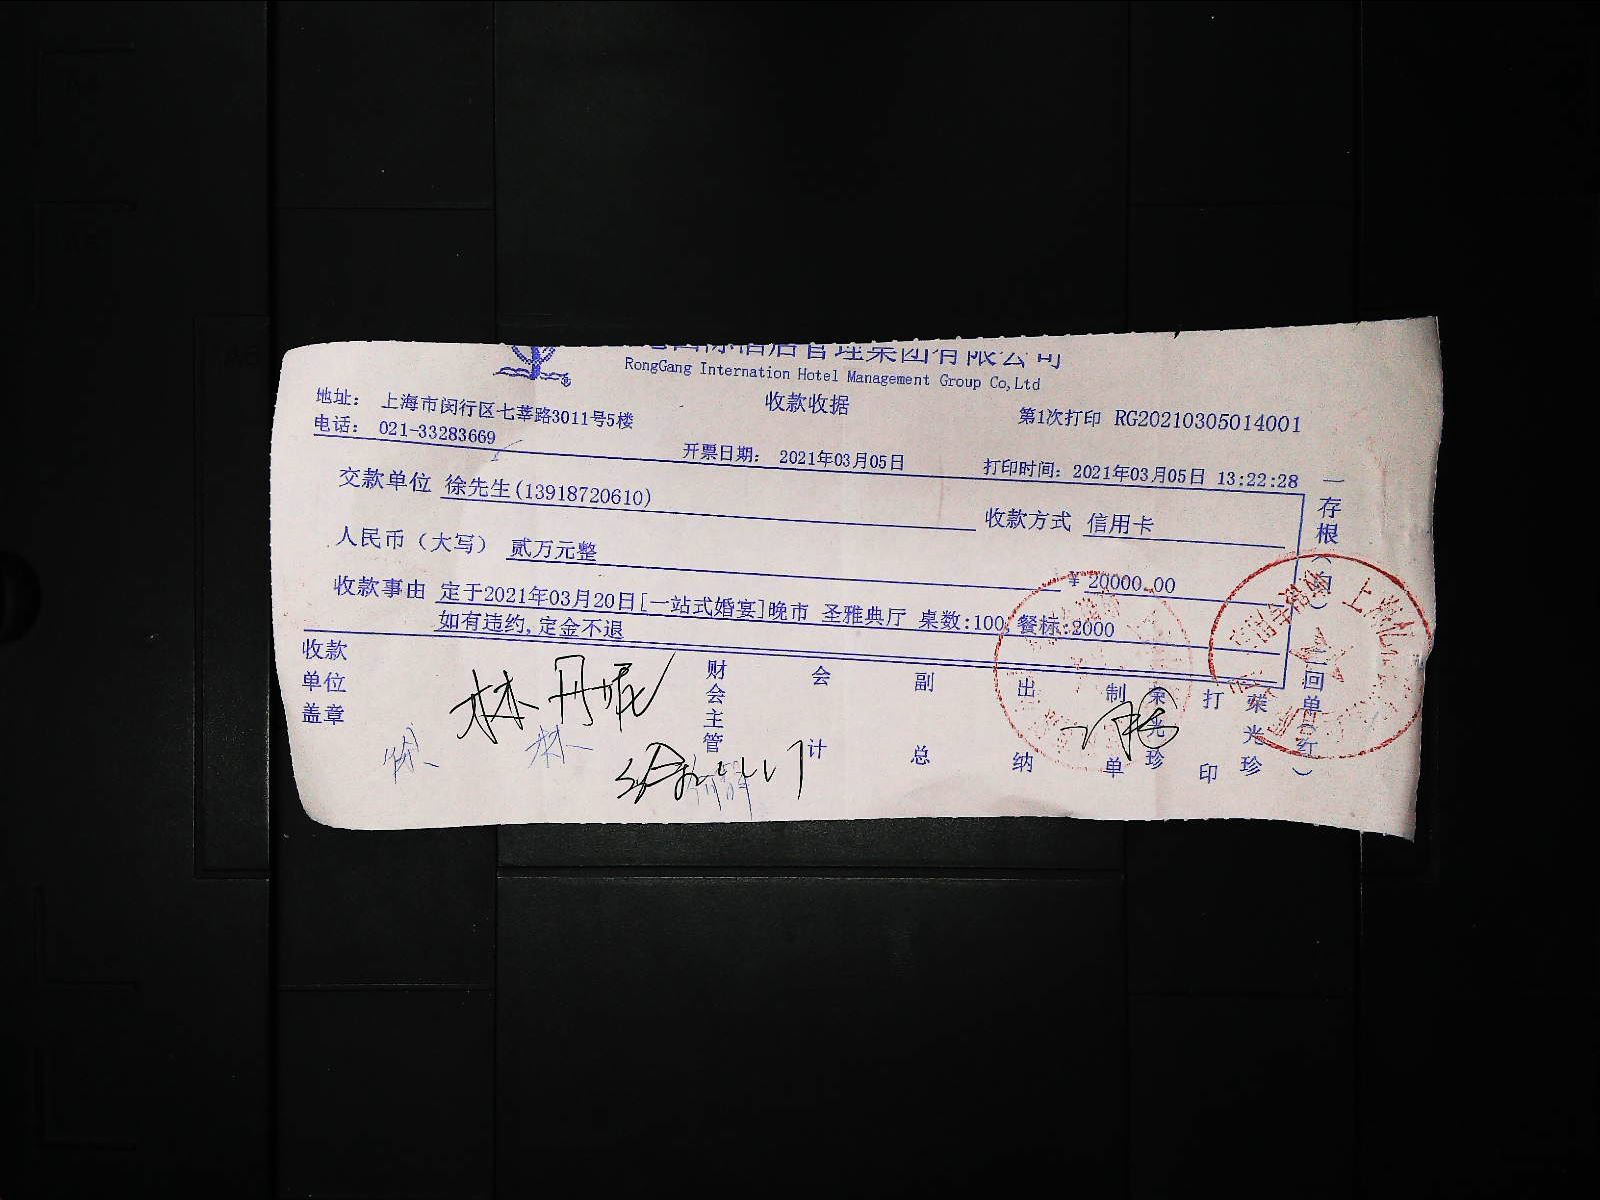 国际酒店管理集团有限公司
RongGang Internation Hotel Management Group Co,Ltd
收款收据
地址： 上海市闵行区七莘路3011号5楼
第1次打印 RG20210305014001
电话： 021-33283669
开票日期： 2021年03月05日
打印时间：2021年03月05日 13:22:28
交款单位 徐先生(13918720610)
收款方式 信用卡
人民币（大写） 贰万元整
¥ 20000.00
收款事由 定于2021年03月20日[一站式婚宴]晚市 圣雅典厅 桌数:100, 餐标:2000
如有违约,定金不退
收款单位盖章
林丹妮
林
财会主管
会计
副总
出纳
制单
荣光珍
打印
荣光珍
一存根（白）二回单（红）
上海亿